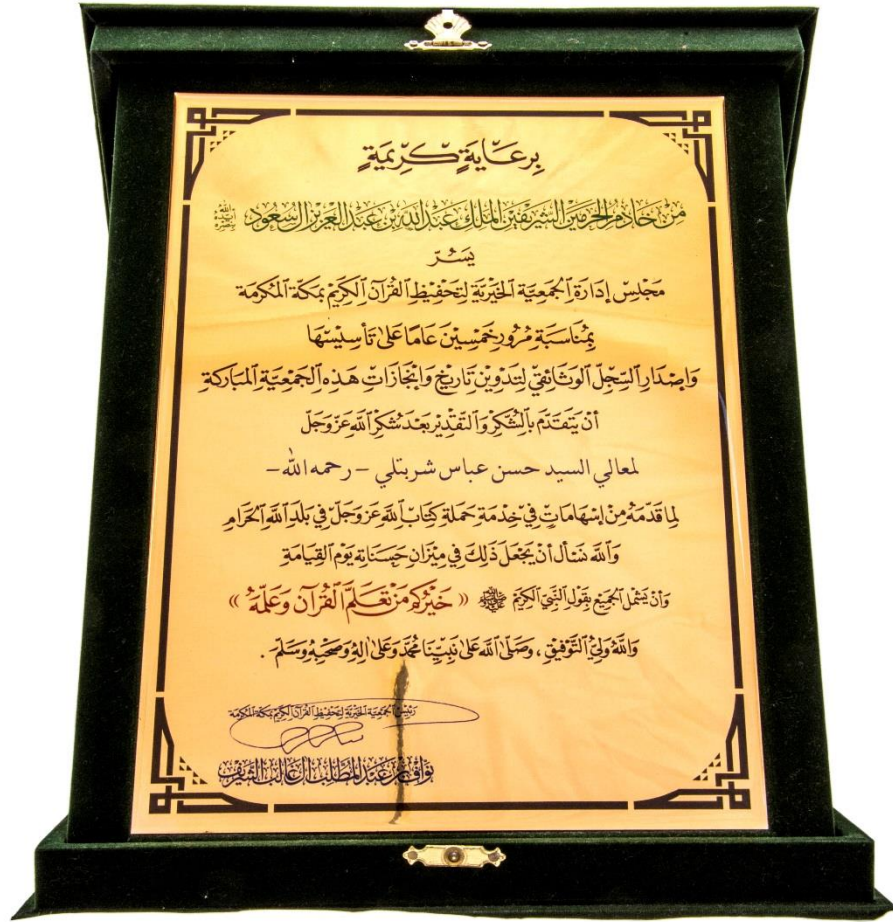 بِرعَايَةٍ كَرِيمَةٍ
مِنْ خَادِمِ الْحَرَمَيْنِ الشَّرِيفَيْنِ الْمَلِكِ عَبْدِ اللهِ بْنِ عَبْدِ الْعَزِيزِ آلِ سُعُود
يَسُرُّ
مَجْلِسَ إِدَارَةِ الْجَمْعِيَّةِ الْخَيْرِيَّةِ لِتَحْفِيظِ الْقُرْآنِ الْكَرِيمِ بِمَكَّةَ الْمُكَرَّمَة
بِمُنَاسَبَةِ مُرُورِ خَمْسِينَ عَامًا عَلَى تَأْسِيسِهَا
وَإِصْدَارِ السِّجِلِّ الْوَثَائِقِيِّ لِتَدْوِينِ تَارِيخِ وَإِنْجَازَاتِ هَذِهِ الْجَمْعِيَّةِ الْمُبَارَكَةِ
أَنْ يَتَقَدَّمَ بِالشُّكْرِ وَالتَّقْدِيرِ بَعْدَ شُكْرِ اللهِ عَزَّ وَجَلَّ
لمعالي السيد حسن عباس شربتلي - رحمه الله -
لِمَا قَدَّمَهُ مِنْ إِسْهَامَاتٍ فِي خِدْمَةِ حَمَلَةِ كِتَابِ اللهِ عَزَّ وَجَلَّ فِي بَلَدِ اللهِ الْحَرَامِ
وَاللهَ نَسْأَلُ أَنْ يَجْعَلَ ذَلِكَ فِي مِيزَانِ حَسَنَاتِهِ يَوْمَ الْقِيَامَةِ
وَأَنْ يَشْمَلَ الْجَمِيعَ بِقَوْلِ النَّبِيِّ الْكَرِيمِ ﷺ « خَيْرُكُمْ مَنْ تَعَلَّمَ الْقُرْآنَ وَعَلَّمَهُ »
وَاللهُ وَلِيُّ التَّوْفِيقِ ، وَصَلَّى اللهُ عَلَى نَبِيِّنَا مُحَمَّدٍ وَعَلَى آلِهِ وَصَحْبِهِ وَسَلَّمَ .
رَئِيسُ الْجَمْعِيَّةِ الْخَيْرِيَّةِ لِتَحْفِيظِ الْقُرْآنِ الْكَرِيمِ بِمَكَّةَ الْمُكَرَّمَة
نواف بن عبد المطلب آل غالب الشريف